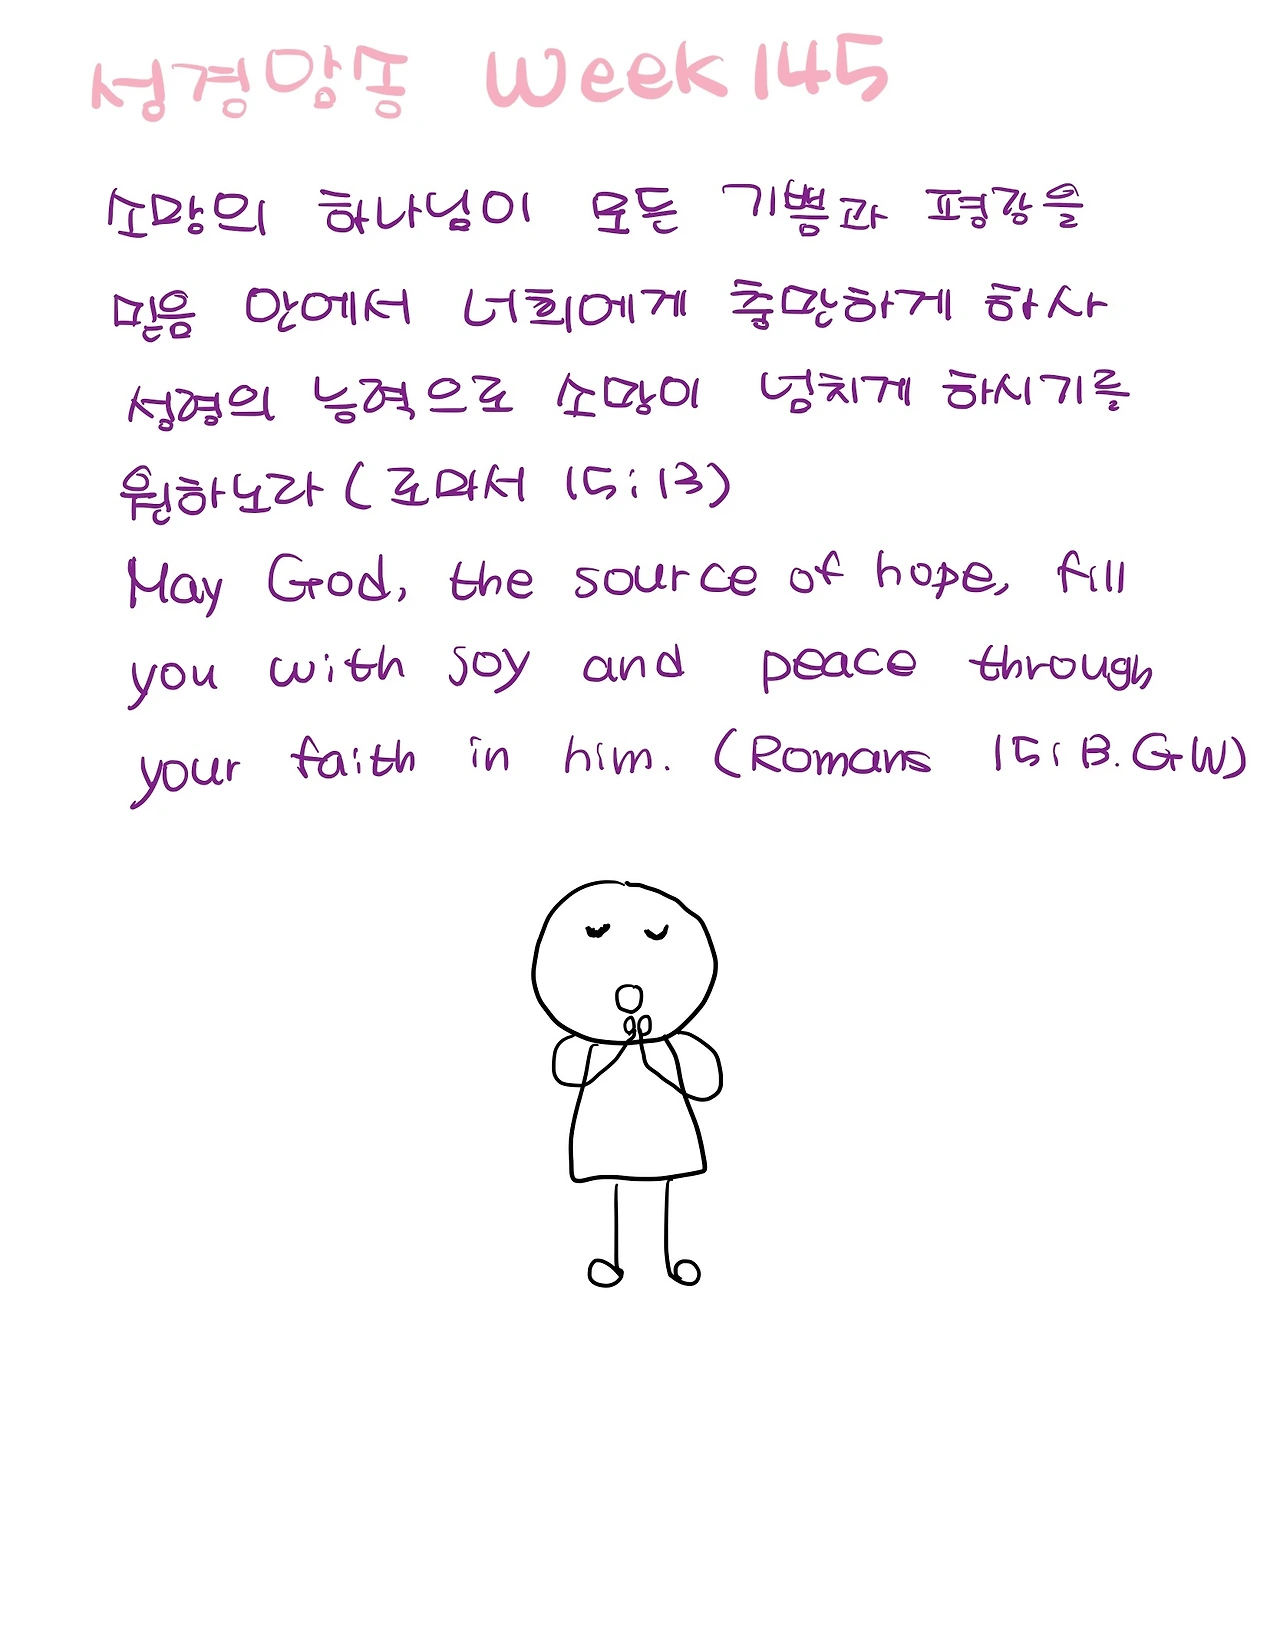 성경암송 Week 145
소망의 하나님이 모든 기쁨과 평강을
믿음 안에서 너희에게 충만하게 하사
성령의 능력으로 소망이 넘치게 하시기를
원하노라 (로마서 15:13)
May God, the source of hope, fill
you with joy and peace through
your faith in him. (Romans 15:13. GW)